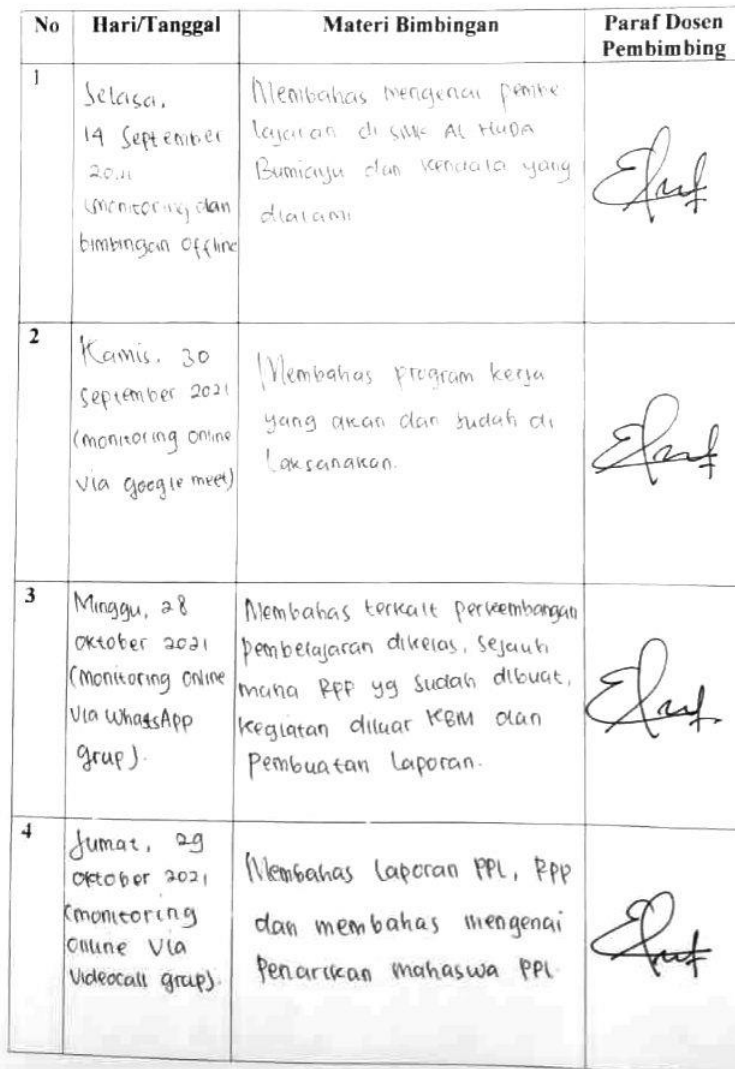 No Hari/Tanggal Materi Bimbingan Paraf Dosen
Pembimbing
1
Selasa,
14 September
2021
(monitoring dan
bimbingan offline
Membahas mengenai pembe
lajaran di SMK AL HUDA
Bumiayu dan kendala yang
dialami
2
Kamis, 30
September 2021
(monitoring online
via google meet)
Membahas program kerja
yang akan dan sudah di
laksanakan.
3
Minggu, 28
oktober 2021
(monitoring online
via WhatsApp
grup).
Membahas terkait perkembangan
pembelajaran dikelas, sejauh
mana RPP yg sudah dibuat,
kegiatan diluar KBM dan
Pembuatan Laporan.
4
Jumat, 29
oktober 2021
(monitoring
online via
videocall grup).
Membahas Laporan PPL, RPP
dan membahas mengenai
Penarikan mahaswa PPL.